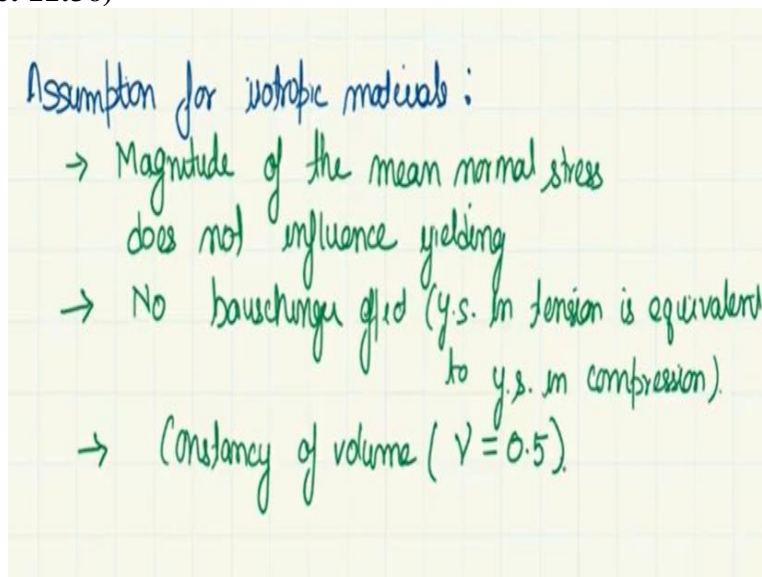 Assumption for isotropic materials :
→ Magnitude of the mean normal stress
does not influence yielding
→ No bauschinger effect (y.s. in tension is equivalent
to y.s. in compression).
→ Constancy of volume ( ν = 0.5).